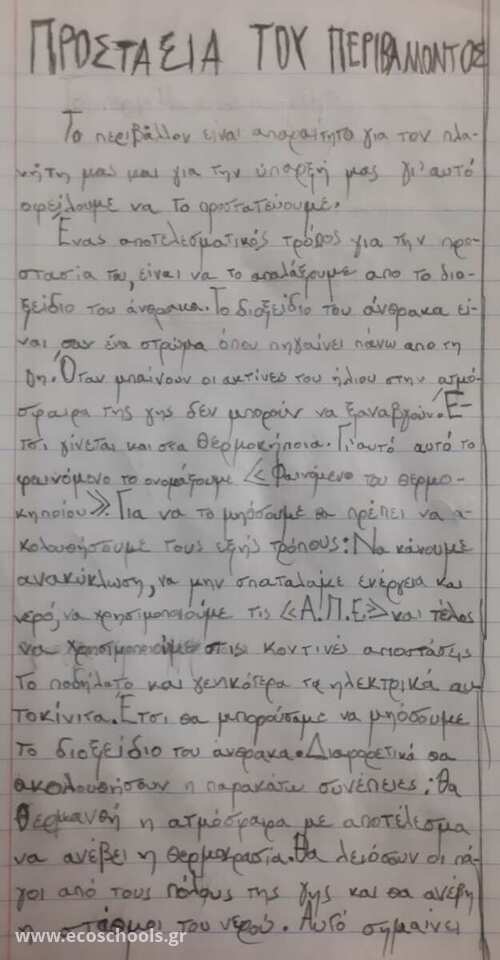 ΠΡΟΣΤΑΣΙΑ ΤΟΥ ΠΕΡΙΒΑΛΛΟΝΤΟΣ
Το περιβάλλον είναι απαραίτητο για τον πλα-
νήτη μας και για την ύπαρξή μας γι'αυτό
οφείλουμε να το προστατεύουμε.
Ένας αποτελεσματικός τρόπος για την προ-
στασία του, είναι να το απαλάξουμε απο το διο-
ξείδιο του άνθρακα. Το διοξείδιο του άνθρακα εί-
ναι σαν ένα στρώμα όπου πηγαίνει πάνω απο τη
γη. Όταν μπαίνουν οι ακτίνες του ήλιου στην ατμό-
σφαιρα της γης δεν μπορούν να ξαναβγούν. Έ-
τσι γίνεται και στα θερμοκήπια. Γι'αυτό αυτό το
φαινόμενο το ονομάζουμε «Φαινόμενο του θερμο-
κηπίου». Για να το μιώσουμε θα πρέπει να α-
κολουθήσουμε τους εξής τρόπους: Να κάνουμε
ανακύκλωση, να μην σπαταλάμε ενέργεια και
νερό, να χρησιμοποιούμε τις «Α.Π.Ε» και τέλος
να χρησιμοποιούμε στις κοντινές αποστάσεις
το ποδήλατο και γενικότερα τα ηλεκτρικά αυ-
τοκίνιτα. Έτσι θα μπορούσαμε να μιώσουμε
το διοξείδιο του άνθρακα. Διαφορετικά θα
ακολουθήσουν η παρακάτω συνέπειες: Θα
θερμανθή η ατμόσφαιρα με αποτέλεσμα
να ανέβει η θερμοκρασία. Θα λειόσουν οι πά-
γοι από τους πόλους της γης και θα ανέβη
η στάθμοι του νερού. Αυτό σημαίνει
www.ecoschools.gr